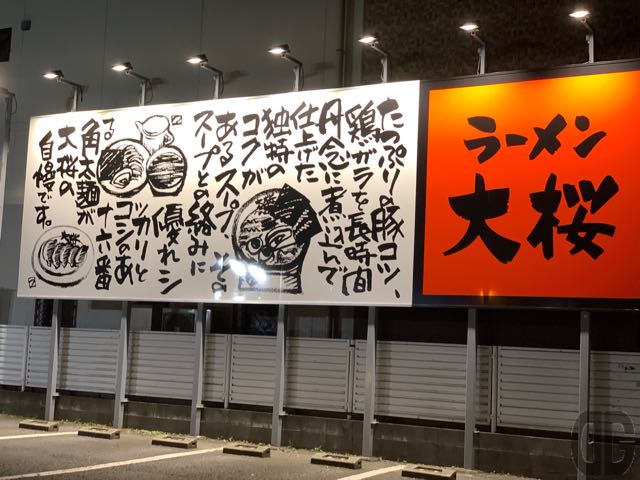 たっぷりの豚コツ、
鶏ガラを長時間
丹念に煮込んで
仕上げた
独特の
コクが
あるスープ その
スープとの絡みに
優れシ
ッカリと
コシのあ
る十六番
角太麺が
大桜の
自慢です。
ラーメン
大桜